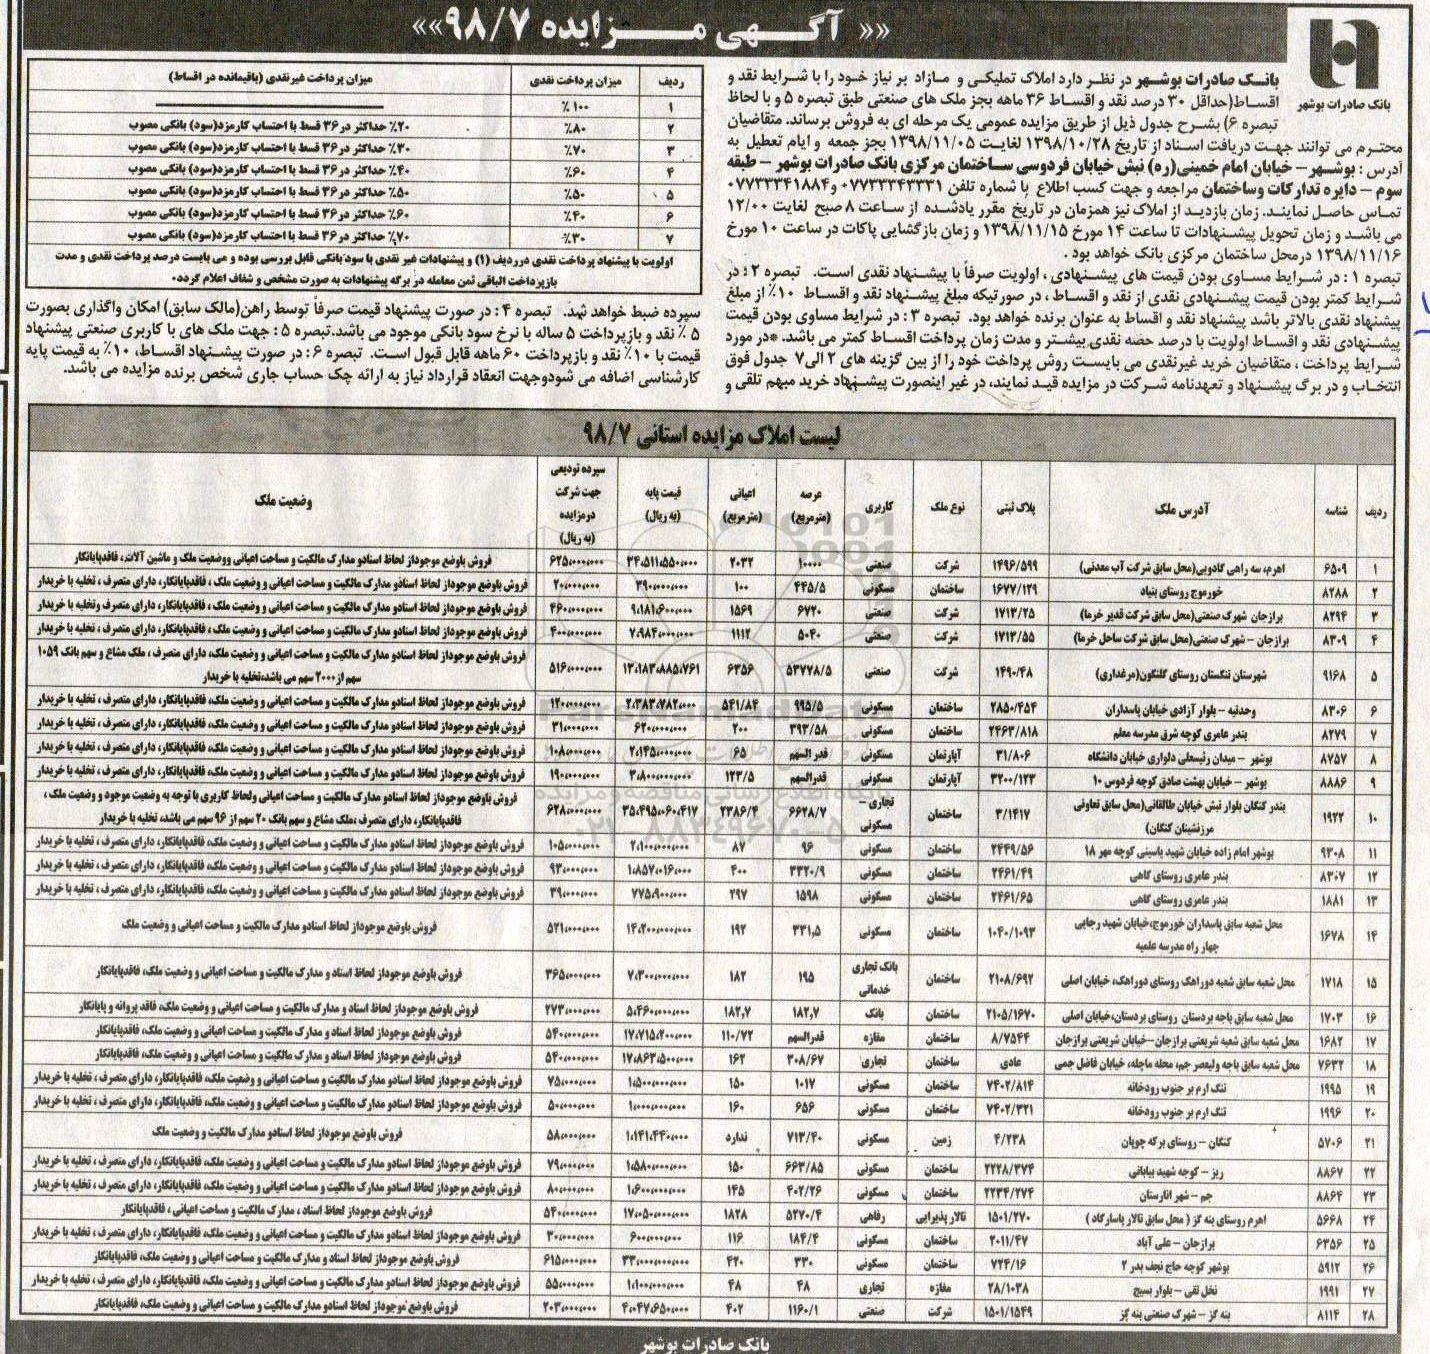 «« آگهی مزایده ۹۸/۷ »»
بانک صادرات بوشهر
بانک صادرات بوشهر در نظر دارد املاک تملیکی و مازاد بر نیاز خود را با شرایط نقد و
اقساط(حداقل ۳۰ درصد نقد و اقساط ۳۶ ماهه بجز ملک های صنعتی طبق تبصره ۵ و با لحاظ
تبصره ۶) بشرح جدول ذیل از طریق مزایده عمومی یک مرحله ای به فروش برساند. متقاضیان
محترم می توانند جهت دریافت اسناد از تاریخ ۱۳۹۸/۱۰/۲۸ لغایت ۱۳۹۸/۱۱/۰۵ بجز جمعه و ایام تعطیل به
آدرس : بوشهر – خیابان امام خمینی(ره) نبش خیابان فردوسی ساختمان مرکزی بانک صادرات بوشهر – طبقه
سوم – دایره تدارکات وساختمان مراجعه و جهت کسب اطلاع با شماره تلفن ۰۷۷۳۳۳۴۳۳۳۱ و۰۷۷۳۳۳۴۱۸۸۴
تماس حاصل نمایند. زمان بازدید از املاک نیز همزمان در تاریخ مقرر یادشده از ساعت ۸ صبح لغایت ۱۲/۰۰
می باشد و زمان تحویل پیشنهادات تا ساعت ۱۴ مورخ ۱۳۹۸/۱۱/۱۵ و زمان بازگشایی پاکات در ساعت ۱۰ مورخ
۱۳۹۸/۱۱/۱۶ درمحل ساختمان مرکزی بانک خواهد بود .
تبصره ۱ : در شرایط مساوی بودن قیمت های پیشنهادی ، اولویت صرفاً با پیشنهاد نقدی است. تبصره ۲ : در
شرایط کمتر بودن قیمت پیشنهادی نقدی از نقد و اقساط ، در صورتیکه مبلغ پیشنهاد نقد و اقساط ۱۰٪ از مبلغ
پیشنهاد نقدی بالاتر باشد پیشنهاد نقد و اقساط به عنوان برنده خواهد بود. تبصره ۳ : در شرایط مساوی بودن قیمت
پیشنهادی نقد و اقساط اولویت با درصد حصه نقدی بیشتر و مدت زمان پرداخت اقساط کمتر می باشد. *در مورد
شرایط پرداخت ، متقاضیان خرید غیرنقدی می بایست روش پرداخت خود را از بین گزینه های ۲ الی۷ جدول فوق
انتخاب و در برگ پیشنهاد و تعهدنامه شرکت در مزایده قید نمایند، در غیر اینصورت پیشنهاد خرید مبهم تلقی و
ردیف | میزان پرداخت نقدی | میزان پرداخت غیرنقدی (باقیمانده در اقساط)
۱ | ۱۰۰٪
۲ | ۸۰٪ | ۲۰٪ حداکثر در ۳۶ قسط با احتساب کارمزد(سود) بانکی مصوب
۳ | ۷۰٪ | ۳۰٪ حداکثر در ۳۶ قسط با احتساب کارمزد(سود) بانکی مصوب
۴ | ۶۰٪ | ۴۰٪ حداکثر در ۳۶ قسط با احتساب کارمزد(سود) بانکی مصوب
۵ | ۵۰٪ | ۵۰٪ حداکثر در ۳۶ قسط با احتساب کارمزد(سود) بانکی مصوب
۶ | ۴۰٪ | ۶۰٪ حداکثر در ۳۶ قسط با احتساب کارمزد(سود) بانکی مصوب
۷ | ۳۰٪ | ۷۰٪ حداکثر در ۳۶ قسط با احتساب کارمزد(سود) بانکی مصوب
اولویت با پیشنهاد پرداخت نقدی درردیف (۱) و پیشنهادات غیر نقدی با سود بانکی قابل بررسی بوده و می بایست درصد پرداخت نقدی و مدت
بازپرداخت الباقی ثمن معامله در برگه پیشنهادات به صورت مشخص و شفاف اعلام گردد.
سپرده ضبط خواهد شد. تبصره ۴ : در صورت پیشنهاد قیمت صرفاً توسط راهن(مالک سابق) امکان واگذاری بصورت
۵ ٪ نقد و بازپرداخت ۵ ساله با نرخ سود بانکی موجود می باشد.تبصره ۵ : جهت ملک های با کاربری صنعتی پیشنهاد
قیمت با ۱۰٪ نقد و بازپرداخت ۶۰ ماهه قابل قبول است. تبصره ۶ : در صورت پیشنهاد اقساط، ۱۰٪ به قیمت پایه
کارشناسی اضافه می شودوجهت انعقاد قرارداد نیاز به ارائه چک حساب جاری شخص برنده مزایده می باشد.
لیست املاک مزایده استانی ۹۸/۷
ردیف | شناسه | آدرس ملک | پلاک ثبتی | نوع ملک | کاربری | عرصه (مترمربع) | اعیانی (مترمربع) | قیمت پایه (به ریال) | سپرده تودیعی جهت شرکت درمزایده (به ریال) | وضعیت ملک
۱ | ۶۵۰۹ | اهرم، سه راهی کادویی(محل سابق شرکت آب معدنی) | ۱۴۹۶/۵۹۹ | شرکت | صنعتی | ۱۰۰۰۰ | ۲۰۳۲ | ۳۴،۵۱۱،۵۵۰،۰۰۰ | ۶۲۵،۰۰۰،۰۰۰ | فروش باوضع موجوداز لحاظ اسنادو مدارک مالکیت و مساحت اعیانی ووضعیت ملک و ماشین آلات، فاقدپایانکار
۲ | ۸۲۸۸ | خورموج روستای بنیاد | ۱۶۷۷/۱۲۹ | ساختمان | مسکونی | ۴۴۵/۵ | ۱۰۰ | ۳۹۰،۰۰۰،۰۰۰ | ۲۰،۰۰۰،۰۰۰ | فروش باوضع موجوداز لحاظ اسنادو مدارک مالکیت و مساحت اعیانی و وضعیت ملک ، فاقدپایانکار، دارای متصرف ، تخلیه با خریدار
۳ | ۸۲۹۴ | برازجان شهرک صنعتی(محل سابق شرکت قدیر خرما) | ۱۷۱۳/۲۵ | شرکت | صنعتی | ۶۷۲۰ | ۱۵۶۹ | ۹،۱۸۱،۶۰۰،۰۰۰ | ۴۶۰،۰۰۰،۰۰۰ | فروش باوضع موجوداز لحاظ اسنادو مدارک مالکیت و مساحت اعیانی و وضعیت ملک ، فاقدپایانکار، دارای متصرف ، تخلیه با خریدار
۴ | ۸۳۰۹ | برازجان – شهرک صنعتی(محل سابق شرکت ساحل خرما) | ۱۷۱۳/۵۵ | شرکت | صنعتی | ۵۰۴۰ | ۱۱۱۲ | ۷،۹۸۴،۰۰۰،۰۰۰ | ۴۰۰،۰۰۰،۰۰۰ | فروش باوضع موجوداز لحاظ اسنادو مدارک مالکیت و مساحت اعیانی و وضعیت ملک ، فاقدپایانکار، دارای متصرف ، تخلیه با خریدار
۵ | ۹۱۶۸ | شهرستان تنگستان روستای گلنگون(مرغداری) | ۱۴۹۰/۴۸ | شرکت | صنعتی | ۵۳۷۷۸/۵ | ۶۳۵۶ | ۱۳،۱۸۳،۸۸۵،۷۶۱ | ۵۱۶،۰۰۰،۰۰۰ | فروش باوضع موجوداز لحاظ اسنادو مدارک مالکیت و مساحت اعیانی و وضعیت ملک، دارای متصرف ، ملک مشاع و سهم بانک ۱۰۵۹ سهم از ۲۰۰۰ سهم می باشد،تخلیه با خریدار
۶ | ۸۳۰۶ | وحدتیه – بلوار آزادی خیابان پاسداران | ۲۸۵۰/۴۵۴ | ساختمان | مسکونی | ۹۹۵/۵ | ۵۴۱/۸۴ | ۲،۳۸۳،۷۸۲،۰۰۰ | ۱۲۰،۰۰۰،۰۰۰ | فروش باوضع موجوداز لحاظ اسنادو مدارک مالکیت و مساحت اعیانی و وضعیت ملک، فاقدپایانکار، دارای متصرف ، تخلیه با خریدار
۷ | ۸۲۷۹ | بندر عامری کوچه شرق مدرسه معلم | ۲۴۶۳/۸۱۸ | ساختمان | مسکونی | ۳۹۳/۵۸ | ۲۰۰ | ۶۲۰،۰۰۰،۰۰۰ | ۳۱،۰۰۰،۰۰۰ | فروش باوضع موجوداز لحاظ اسنادو مدارک مالکیت و مساحت اعیانی و وضعیت ملک، فاقدپایانکار، دارای متصرف ، تخلیه با خریدار
۸ | ۸۷۵۷ | بوشهر – میدان رئیسعلی دلواری خیابان دانشگاه | ۳۱/۸۰۶ | آپارتمان | مسکونی | قدر السهم | ۶۵ | ۲،۱۴۵،۰۰۰،۰۰۰ | ۱۰۸،۰۰۰،۰۰۰ | فروش باوضع موجوداز لحاظ اسنادو مدارک مالکیت و مساحت اعیانی و وضعیت ملک، فاقدپایانکار، دارای متصرف ، تخلیه با خریدار
۹ | ۸۸۸۶ | بوشهر – خیابان بهشت صادق کوچه فردوس ۱۰ | ۳۲۰۰/۱۲۳ | آپارتمان | مسکونی | قدرالسهم | ۱۲۳/۵ | ۳،۸۰۰،۰۰۰،۰۰۰ | ۱۹۰،۰۰۰،۰۰۰ | فروش باوضع موجوداز لحاظ اسنادو مدارک مالکیت و مساحت اعیانی و وضعیت ملک، فاقدپایانکار، دارای متصرف ، تخلیه با خریدار
۱۰ | ۱۹۲۲ | بندر کنگان بلوار نبش خیابان طالقانی(محل سابق تعاونی مرزنشینان کنگان) | ۳/۱۴۱۷ | ساختمان | تجاری – مسکونی | ۶۶۲۸/۷ | ۲۳۸۶/۴ | ۳۵،۴۹۵،۰۶۰،۴۱۷ | ۶۲۸،۰۰۰،۰۰۰ | فروش باوضع موجوداز لحاظ اسنادو مدارک مالکیت و مساحت اعیانی ولحاظ کاربری با توجه به وضعیت موجود و وضعیت ملک ، فاقدپایانکار، دارای متصرف ،ملک مشاع و سهم بانک ۲۰ سهم از ۹۶ سهم می باشد، تخلیه با خریدار
۱۱ | ۹۳۰۸ | بوشهر امام زاده خیابان شهید یاسینی کوچه مهر ۱۸ | ۲۴۴۹/۵۶ | ساختمان | مسکونی | ۹۶ | ۸۷ | ۲،۱۰۰،۰۰۰،۰۰۰ | ۱۰۵،۰۰۰،۰۰۰ | فروش باوضع موجوداز لحاظ اسنادو مدارک مالکیت و مساحت اعیانی و وضعیت ملک، فاقدپایانکار، دارای متصرف ، تخلیه با خریدار
۱۲ | ۸۳۰۷ | بندر عامری روستای گاهی | ۲۴۶۱/۴۹ | ساختمان | مسکونی | ۳۳۲۰/۹ | ۴۰۰ | ۱،۸۵۷،۰۱۶،۰۰۰ | ۹۳،۰۰۰،۰۰۰ | فروش باوضع موجوداز لحاظ اسنادو مدارک مالکیت و مساحت اعیانی و وضعیت ملک، فاقدپایانکار، دارای متصرف ، تخلیه با خریدار
۱۳ | ۱۸۸۱ | بندر عامری روستای گاهی | ۲۴۶۱/۶۵ | ساختمان | مسکونی | ۱۵۹۸ | ۲۹۷ | ۷۷۵،۹۰۰،۰۰۰ | ۳۹،۰۰۰،۰۰۰ | فروش باوضع موجوداز لحاظ اسنادو مدارک مالکیت و مساحت اعیانی و وضعیت ملک، فاقدپایانکار، دارای متصرف ، تخلیه با خریدار
۱۴ | ۱۶۷۸ | محل شعبه سابق پاسداران خورموج،خیابان شهید رجایی چهار راه مدرسه علمیه | ۱۰۴۰/۱۰۹۳ | ساختمان | مسکونی | ۳۳۱،۵ | ۱۹۲ | ۱۴،۲۰۰،۰۰۰،۰۰۰ | ۵۲۱،۰۰۰،۰۰۰ | فروش باوضع موجوداز لحاظ اسنادو مدارک مالکیت و مساحت اعیانی و وضعیت ملک
۱۵ | ۱۷۱۸ | محل شعبه سابق شعبه دوراهک روستای دوراهک، خیابان اصلی | ۲۱۰۸/۶۹۲ | ساختمان | بانک تجاری خدماتی | ۱۹۵ | ۱۸۲ | ۷،۳۰۰،۰۰۰،۰۰۰ | ۳۶۵،۰۰۰،۰۰۰ | فروش باوضع موجوداز لحاظ اسناد و مدارک مالکیت و مساحت اعیانی و وضعیت ملک، فاقدپایانکار
۱۶ | ۱۷۰۳ | محل شعبه سابق باجه بردستان روستای بردستان،خیابان اصلی | ۲۱۰۵/۱۶۷۰ | ساختمان | بانک | ۱۸۲،۷ | ۱۸۲،۷ | ۵،۴۶۰،۰۰۰،۰۰۰ | ۲۷۳،۰۰۰،۰۰۰ | فروش باوضع موجوداز لحاظ اسناد و مدارک مالکیت و مساحت اعیانی و وضعیت ملک، فاقد پروانه و پایانکار
۱۷ | ۱۶۸۲ | محل شعبه سابق شعبه شریعتی برازجان–خیابان شریعتی برازجان | ۸/۷۵۴۴ | ساختمان | مغازه | قدرالسهم | ۱۱۰/۷۲ | ۱۷،۷۱۵،۲۰۰،۰۰۰ | ۵۴۰،۰۰۰،۰۰۰ | فروش باوضع موجوداز لحاظ اسناد و مدارک مالکیت و مساحت اعیانی و وضعیت ملک، فاقدپایانکار
۱۸ | ۷۶۳۲ | محل شعبه سابق باجه ولیعصر جم، محله ماچله، خیابان فاضل جمی | عادی | ساختمان | تجاری | ۳۰۸/۶۷ | ۱۶۲ | ۱۷،۸۶۳،۵۰۰،۰۰۰ | ۵۴۰،۰۰۰،۰۰۰ | فروش باوضع موجوداز لحاظ اسناد و مدارک مالکیت و مساحت اعیانی و وضعیت ملک، فاقدپایانکار
۱۹ | ۱۹۹۵ | تنگ ارم بر جنوب رودخانه | ۷۴۰۲/۸۱۴ | ساختمان | مسکونی | ۱۰۱۷ | ۱۵۰ | ۱،۵۰۰،۰۰۰،۰۰۰ | ۷۵،۰۰۰،۰۰۰ | فروش باوضع موجوداز لحاظ اسنادو مدارک مالکیت و مساحت اعیانی و وضعیت ملک، فاقدپایانکار، دارای متصرف ، تخلیه با خریدار
۲۰ | ۱۹۹۶ | تنگ ارم بر جنوب رودخانه | ۷۴۰۲/۳۲۱ | ساختمان | مسکونی | ۶۵۶ | ۱۶۰ | ۱،۰۰۰،۰۰۰،۰۰۰ | ۵۰،۰۰۰،۰۰۰ | فروش باوضع موجوداز لحاظ اسنادو مدارک مالکیت و مساحت اعیانی و وضعیت ملک، فاقدپایانکار، دارای متصرف ، تخلیه با خریدار
۲۱ | ۵۷۰۶ | کنگان – روستای برکه چوپان | ۴/۲۳۸ | زمین | مسکونی | ۷۱۳/۴۰ | ندارد | ۱،۱۴۱،۴۴۰،۰۰۰ | ۵۸،۰۰۰،۰۰۰ | فروش باوضع موجوداز لحاظ اسنادو مدارک مالکیت و وضعیت ملک
۲۲ | ۸۸۶۷ | ریز – کوچه شهید بیابانی | ۲۲۲۸/۳۷۴ | ساختمان | مسکونی | ۶۶۳/۸۵ | ۱۵۰ | ۱،۵۸۰،۰۰۰،۰۰۰ | ۷۹،۰۰۰،۰۰۰ | فروش باوضع موجوداز لحاظ اسنادو مدارک مالکیت و مساحت اعیانی و وضعیت ملک، فاقدپایانکار، دارای متصرف ، تخلیه با خریدار
۲۳ | ۸۸۶۴ | جم – شهر انارستان | ۲۲۳۴/۲۷۴ | ساختمان | مسکونی | ۴۰۲/۲۶ | ۱۴۵ | ۱،۶۰۰،۰۰۰،۰۰۰ | ۸۰،۰۰۰،۰۰۰ | فروش باوضع موجوداز لحاظ اسنادو مدارک مالکیت و مساحت اعیانی و وضعیت ملک، فاقدپایانکار، دارای متصرف ، تخلیه با خریدار
۲۴ | ۵۶۶۸ | اهرم روستای بنه گز ( محل سابق تالار پاسارگاد ) | ۱۵۰۱/۲۷۰ | تالار پذیرایی | رفاهی | ۵۲۷۰/۴ | ۱۸۲۸ | ۱۷،۰۵۰،۰۰۰،۰۰۰ | ۵۴۰،۰۰۰،۰۰۰ | فروش باوضع موجوداز لحاظ اسناد ، مدارک مالکیت و مساحت اعیانی ، فاقدپایانکار
۲۵ | ۶۳۵۶ | برازجان – علی آباد | ۲۰۱۱/۴۷ | ساختمان | مسکونی | ۱۸۴/۴ | ۱۱۶ | ۶۰۰،۰۰۰،۰۰۰ | ۳۰،۰۰۰،۰۰۰ | فروش باوضع موجوداز لحاظ اسنادو مدارک مالکیت و مساحت اعیانی و وضعیت ملک، فاقدپایانکار، دارای متصرف ، تخلیه با خریدار
۲۶ | ۵۹۱۲ | بوشهر کوچه حاج نجف بدر ۲ | ۷۲۴/۱۶ | ساختمان | مسکونی | ۳۳۰ | ۴۲۰ | ۳۳،۰۰۰،۰۰۰،۰۰۰ | ۶۱۵،۰۰۰،۰۰۰ | فروش باوضع موجوداز لحاظ اسناد و مدارک مالکیت و مساحت اعیانی و وضعیت ملک، فاقدپایانکار
۲۷ | ۱۹۹۱ | نخل تقی – بلوار بسیج | ۲۸/۱۰۳۸ | مغازه | تجاری | ۴۸ | ۴۸ | ۱،۱۰۰،۰۰۰،۰۰۰ | ۵۵،۰۰۰،۰۰۰ | فروش باوضع موجوداز لحاظ اسنادو مدارک مالکیت و مساحت اعیانی و وضعیت ملک، فاقدپایانکار، دارای متصرف ، تخلیه با خریدار
۲۸ | ۸۱۱۴ | بنه گز – شهرک صنعتی بنه گز | ۱۵۰۱/۱۵۴۹ | شرکت | صنعتی | ۱۱۶۰/۱ | ۴۰۲ | ۴،۰۴۷،۶۵۰،۰۰۰ | ۲۰۳،۰۰۰،۰۰۰ | فروش باوضع موجوداز لحاظ اسناد و مدارک مالکیت و مساحت اعیانی و وضعیت ملک، فاقدپایانکار
بانک صادرات بوشهر